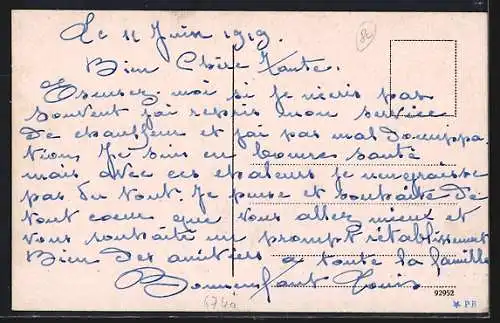 Le 11 Juin 1919.
80
Bien Chère Tante.
Excusez moi si je n'ecris pas
souvent j'ai repris mon service
de chauffeur et j'ai pas mal d'occuppa
tions, Je suis en bonne santé
mais avec ces chaleurs je n'engraisse
pas du tout. Je pense et souhaite de
tout coeur que vous allez mieux et
vous souhaite un prompt rétablissement
Bien des amitiés à toute la famille
Bonnenfant Louis
674a
92952
P R